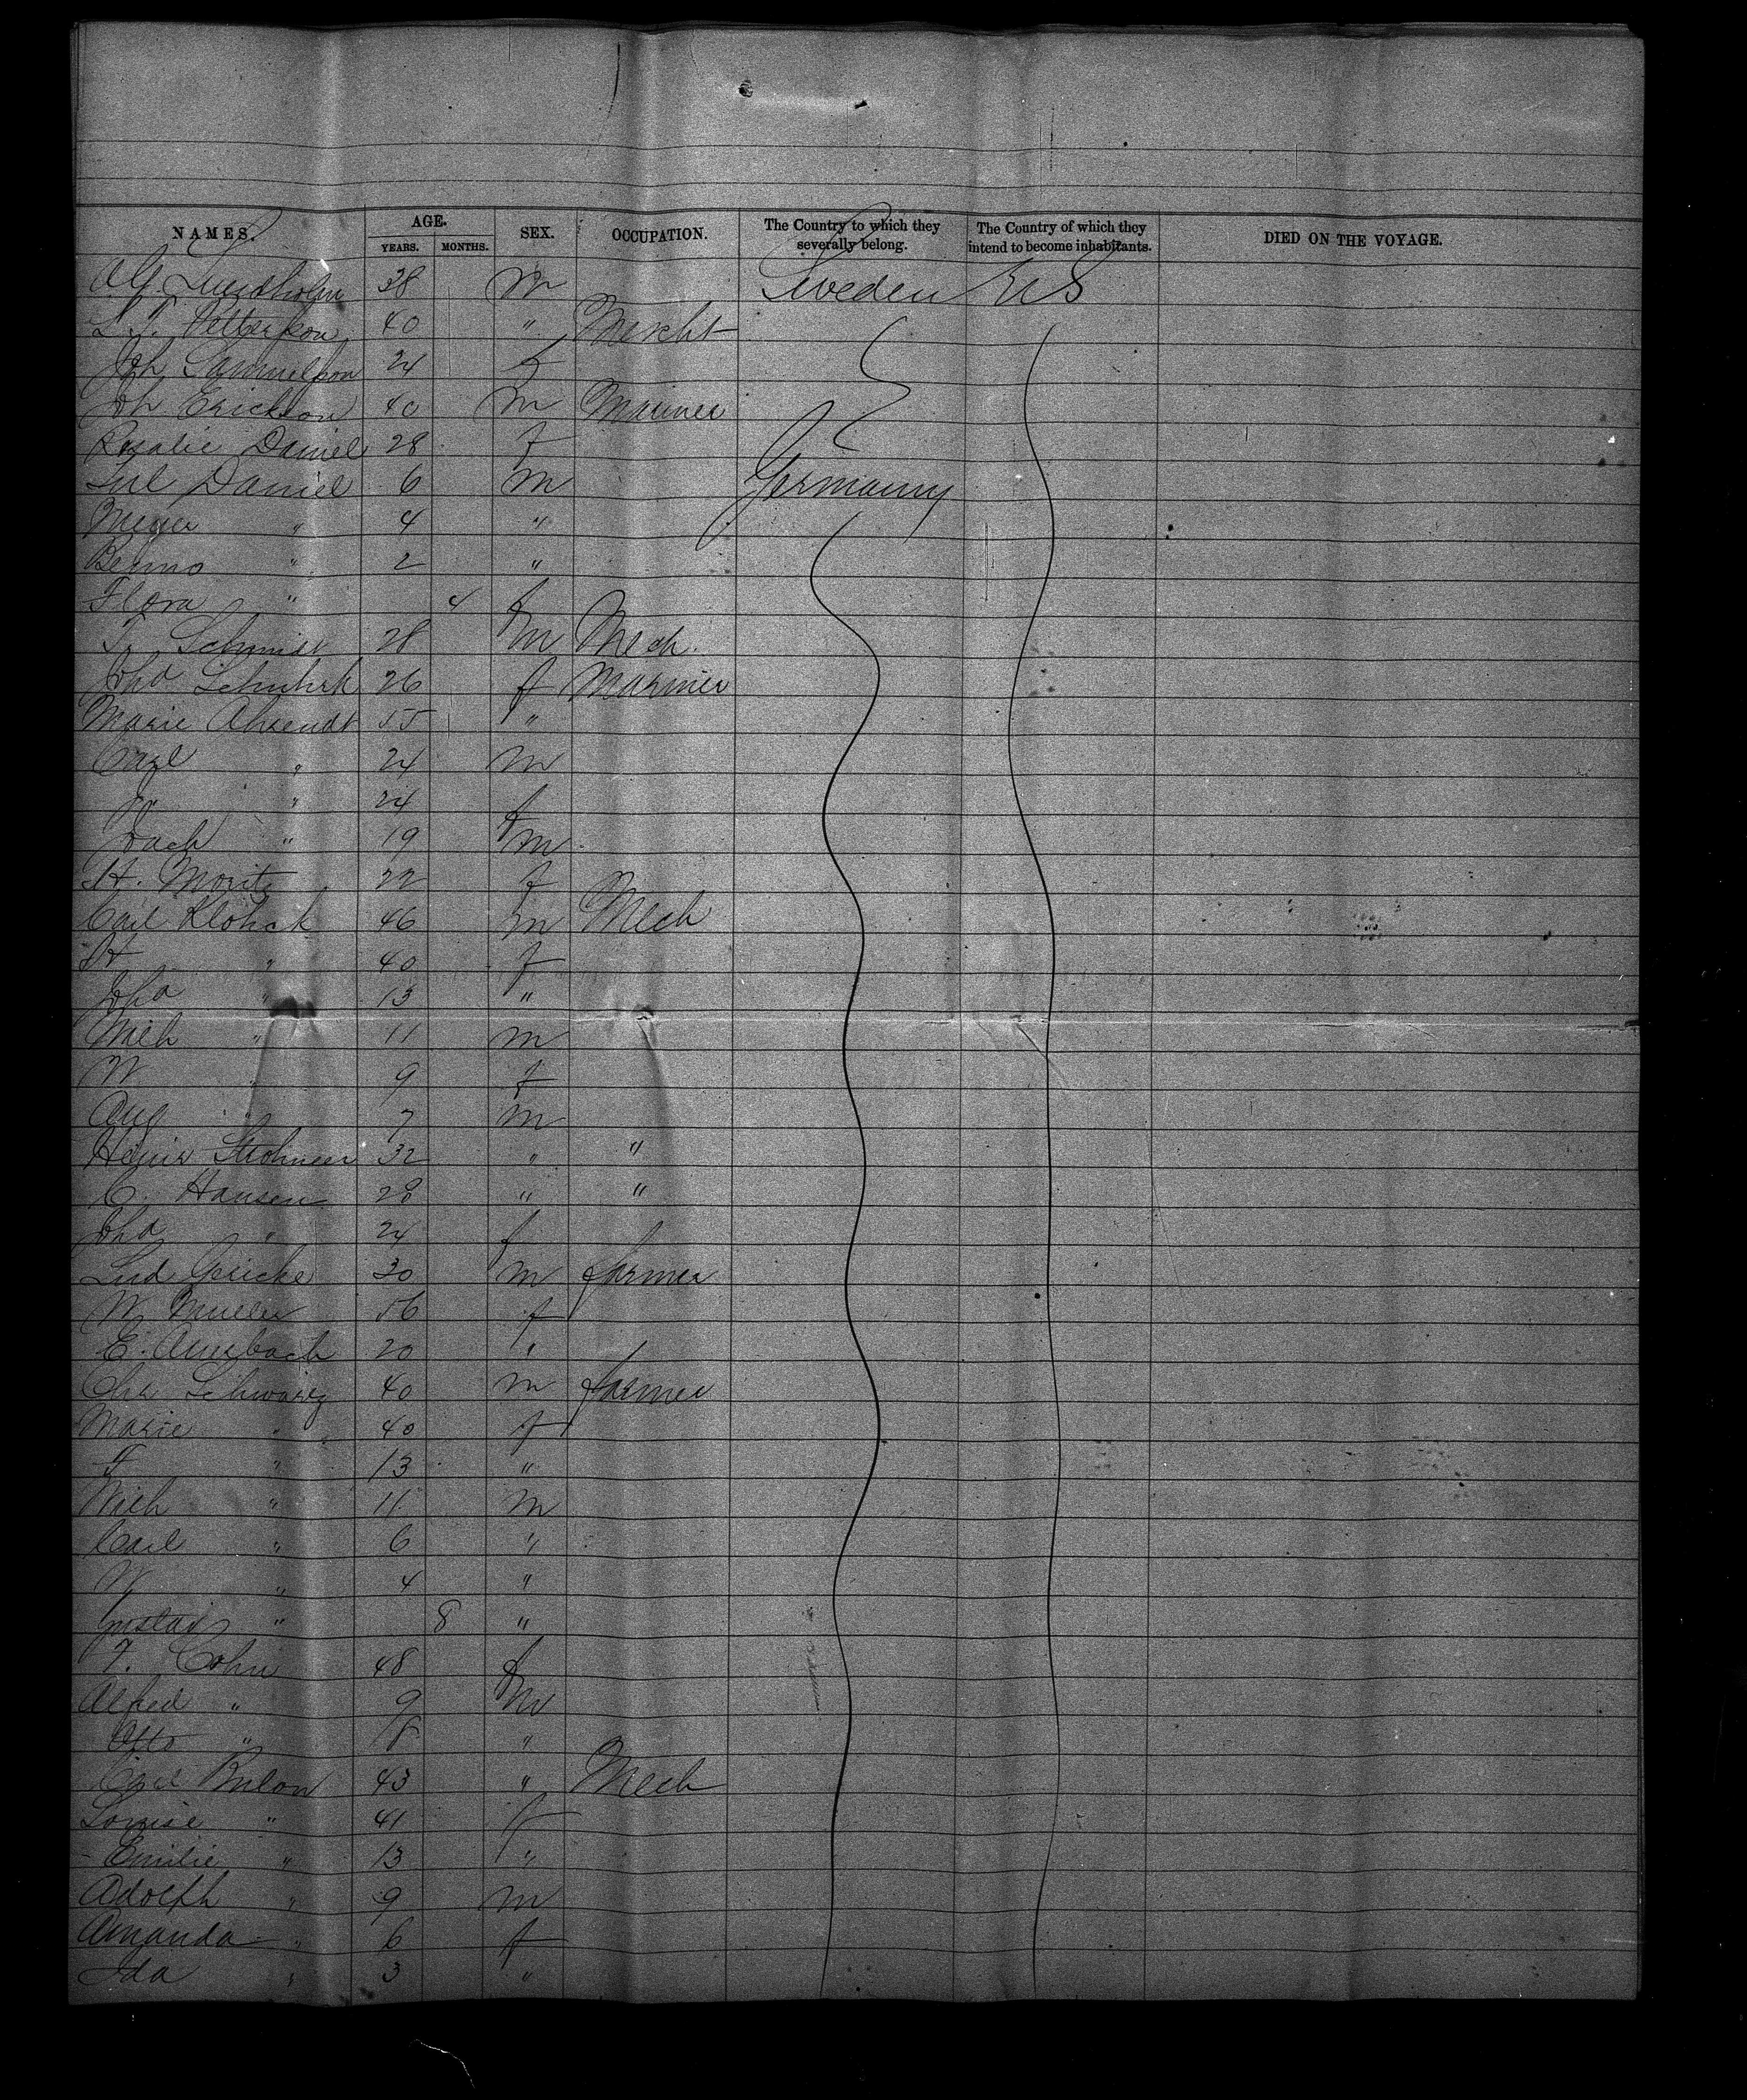 NAMES. AGE. SEX. OCCUPATION. The Country to which they severally belong. The Country of which they intend to become inhabitants. DIED ON THE VOYAGE.
YEARS. MONTHS.
38 m Sweden US
40 " Mercht
Joh Samuelson 24 f
Joh Erickson 40 m Mariner
Rosalie Daniel 28 f
Jul Daniel 6 m Germany
Meyer " 4 "
Benno " 2 "
Flora " 4 f
F. Schmidt 28 m Mech.
Joha 26 f Mariner
Marie Ahrendt 55 "
Carl " 24 m
" 24 f
Joach " 19 m
H. Moritz 22 f
Carl Klohck 46 m Mech
H " 40 f
Joha " 13 "
Wilh " 11 m
W " 9 f
Aug " 7 m
32 " "
C. Hansen 28 " "
Joha " 24 f
Lud Gericke 30 m farmer
W Muller 56 f
E. Auerbach 20 "
Chr Schwarz 40 m farmer
Marie " 40 f
F " 13 "
Wilh " 11 m
Carl " 6 "
W " 4 "
Gustav " 8 "
F. Cohn 48 f
Alfred " 9 m
Otto " 8 "
Carl Bulow 43 " Mech
Louise " 41 f
Emilie " 13 "
Adolph " 9 m
Amanda " 6 f
Ida " 3 "